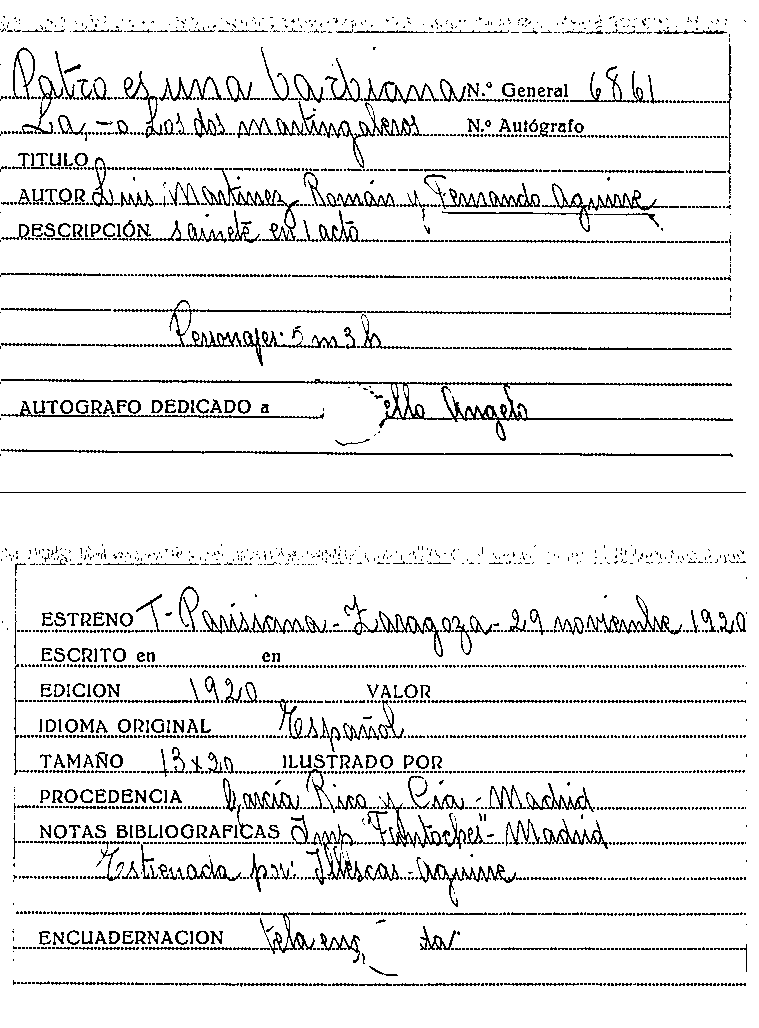 Patro es una barbiana N.º General 6861
La, - o Los dos martingaleros N.º Autógrafo
TITULO
AUTOR Luis Martinez Román y Fernando Aguirre
DESCRIPCIÓN sainete en 1 acto
Personajes: 5 m 3 h
AUTOGRAFO DEDICADO a Angelo
ESTRENO T- Parisiana - Zaragoza - 29 noviembre 1920
ESCRITO en en
EDICION 1920 VALOR
IDIOMA ORIGINAL Español
TAMAÑO 13 x 20 ILUSTRADO POR
PROCEDENCIA García Rico y Cía - Madrid
NOTAS BIBLIOGRAFICAS Imp " - Madrid
Estrenada por: Illescas - Aguirre
ENCUADERNACION tela